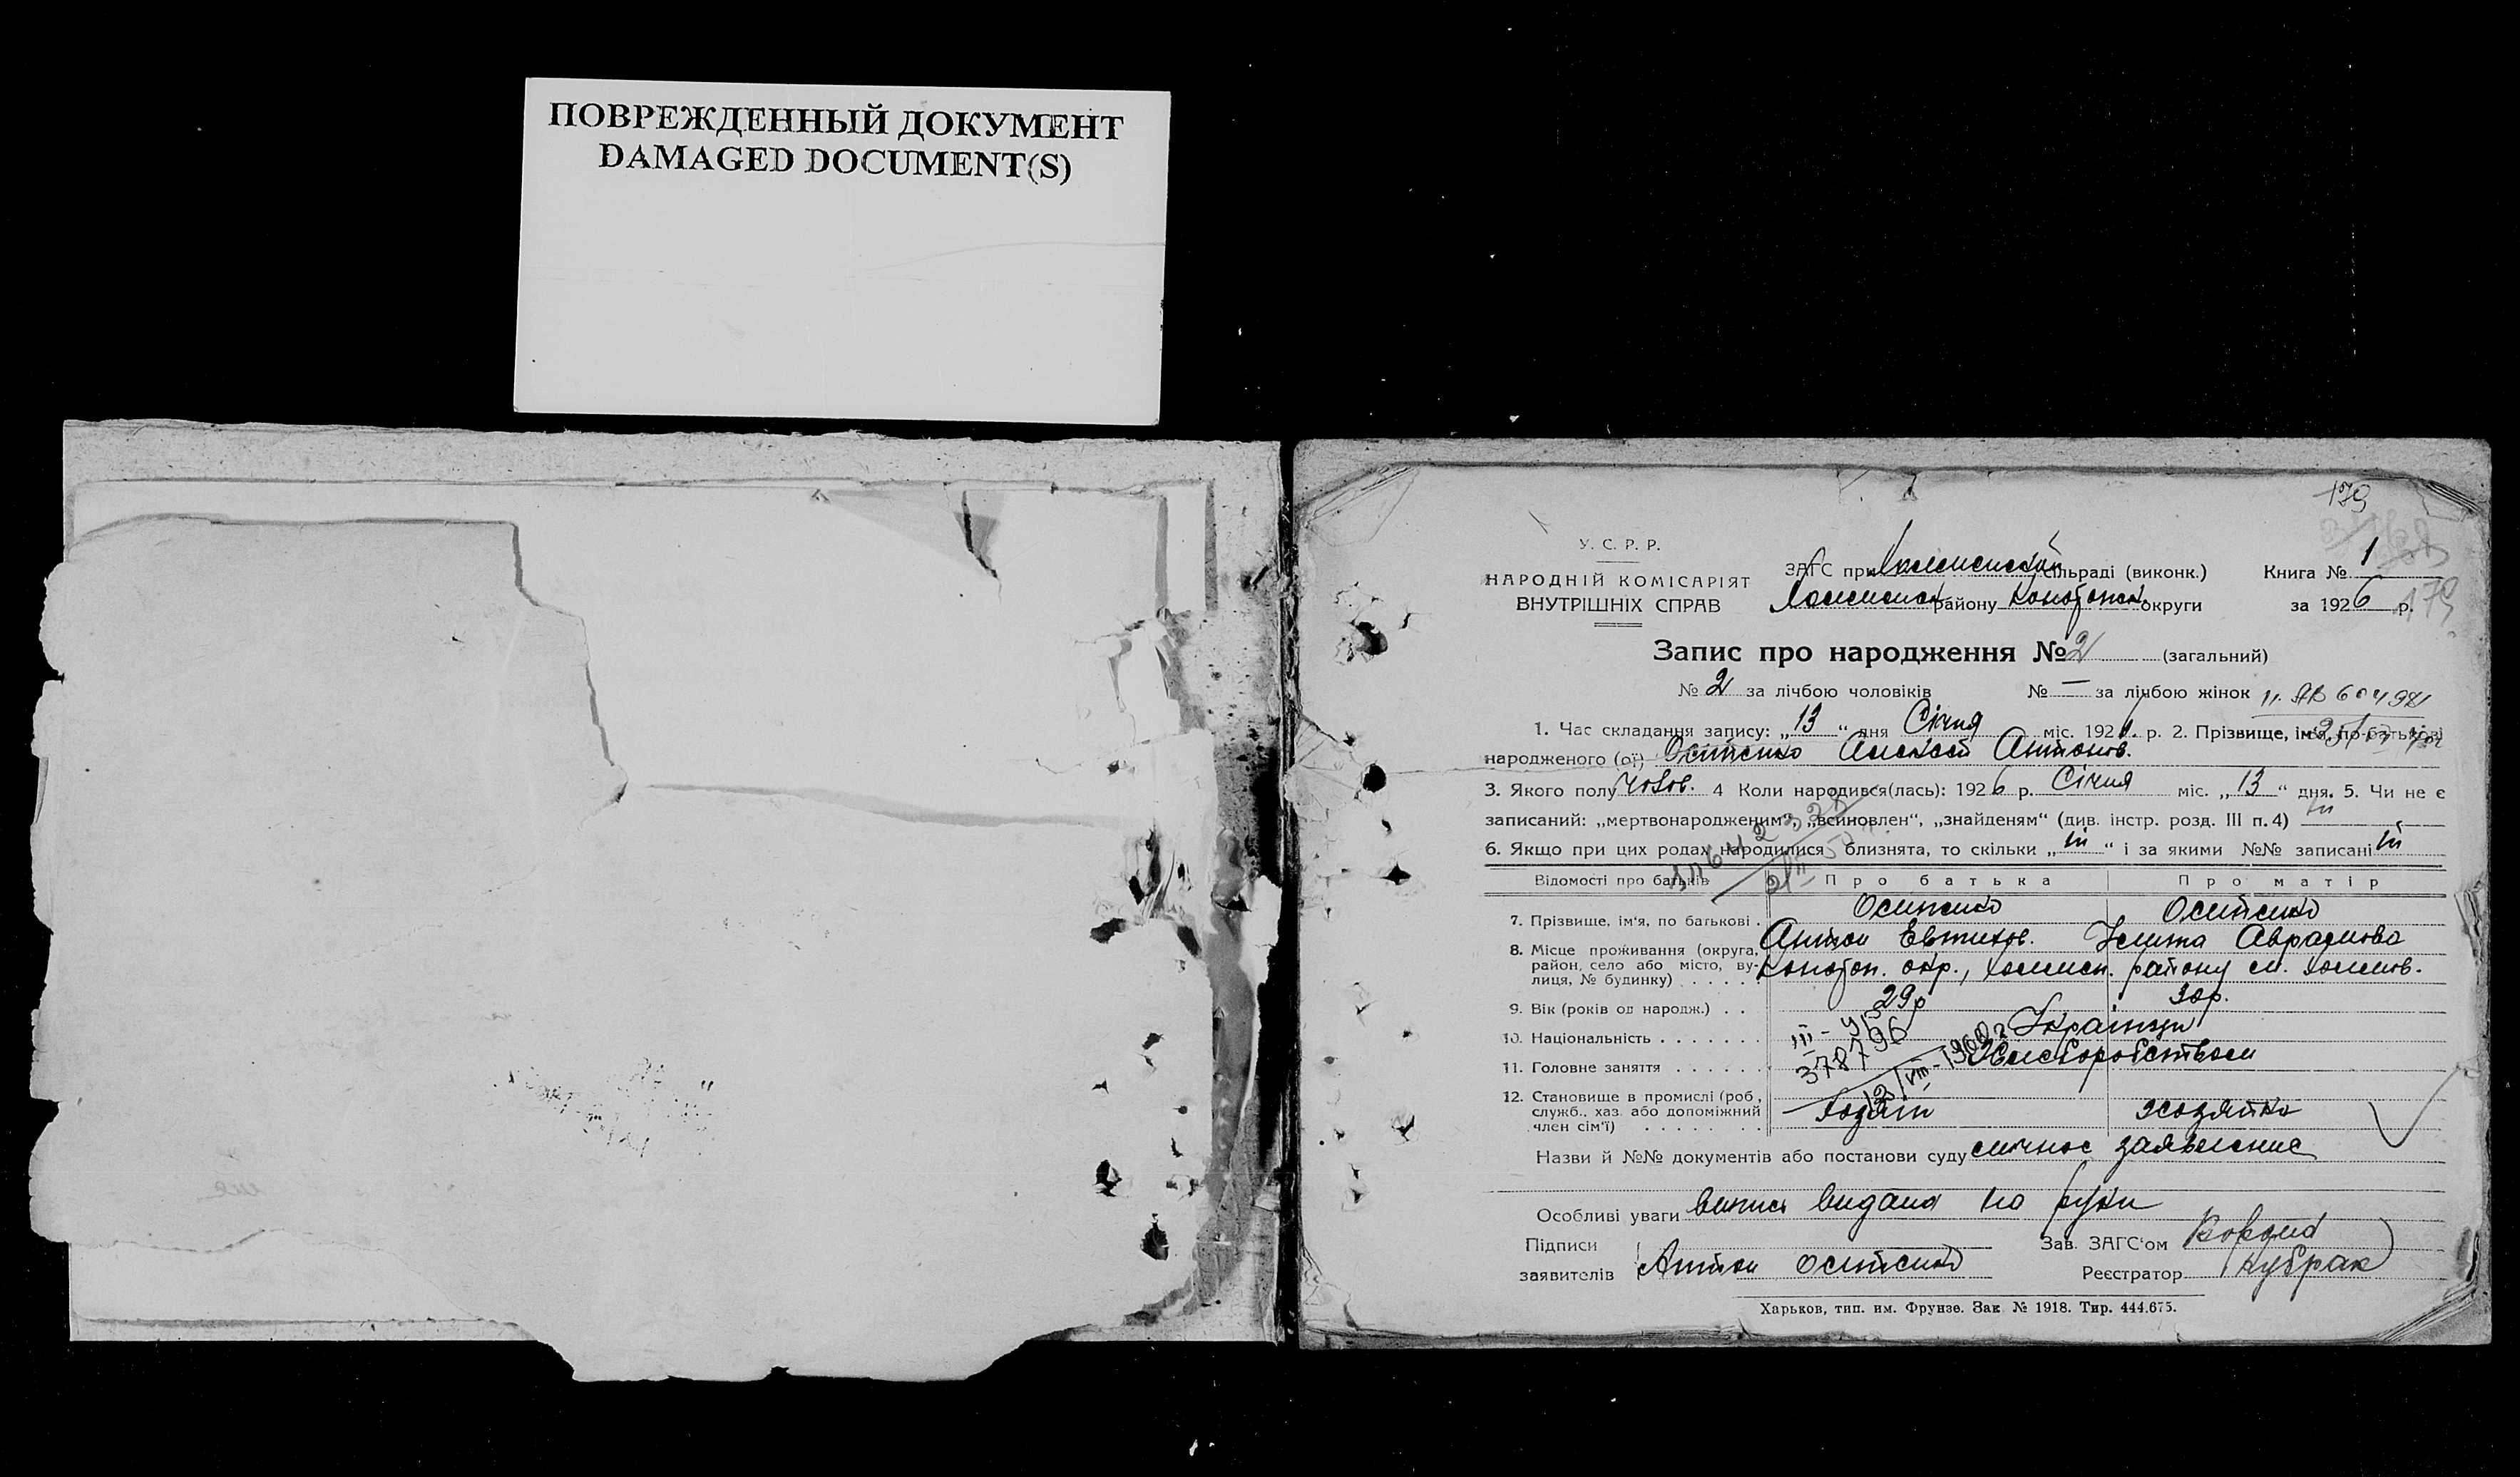 ПОВРЕЖДЕННЫЙ ДОКУМЕНТ
DAMAGED DOCUMENT(S)
179
У. С. Р. Р.
НАРОДНІЙ КОМІСАРІЯТ
ВНУТРІШНІХ СПРАВ
ЗАГС при сільраді (виконк.)
району Конотопск. округи
Книга № 1
за 1926 р.
179
Запис про народження № 2 (загальний)
№ 2 за лічбою чоловіків № — за лічбою жінок
1. Час складання запису: „13“ дня Січня міс. 192 р. 2. Прізвище, ім'я, по батькові
народженого (ої) Осипенко Алексей Антонов.
3. Якого полу чолов. 4 Коли народився(лась): 1926 р. Січня міс. „13“ дня. 5. Чи не є
записаний: „мертвонародженим“, „всиновлен“, „знайденям“ (див. інстр. розд. III п. 4) ні
6. Якщо при цих родах народилися близнята, то скільки „ні“ і за якими №№ записані ні
Відомості про батьків Про батька Про матір
7. Прізвище, ім'я, по батькові . Осипенко Осипенко
Антон Евтихов. Улита Авраамова
8. Місце проживання (округа, район, село або місто, вулиця, № будинку) . . . . . Конотоп. окр., району
9. Вік (років од народж.) . . 29 р 30 р.
10. Національність . . . . . . . Українці
11. Головне заняття . . . . . . Хліборобством
III-ЯБ
378796
13/VIII-1960 г
12. Становище в промислі (роб., служб., хаз. або допоміжний член сім'ї) . . . . . . . Хозяїн хозяйка
Назви й №№ документів або постанови суду личное заявление
Особливі уваги випись видана на руки
Підписи заявителів Антон Осипенко
Зав. ЗАГС'ом
Реєстратор Кубрак
Харьков, тип. им. Фрунзе. Зак. № 1918. Тир. 444.675.